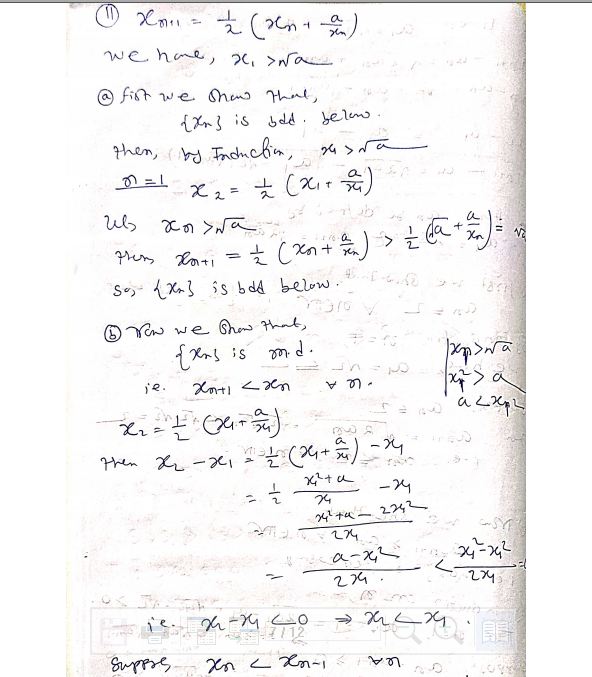 ⑪ xₙ₊₁ = 1/2 (xₙ + a/xₙ)
we have, x₁ > √a
ⓐ first we show that,
{xₙ} is bdd. below.
then, by Induction, x₁ > √a
n=1 x₂ = 1/2 (x₁ + a/x₁)
xₙ > √a
then xₙ₊₁ = 1/2 (xₙ + a/xₙ) > 1/2 (√a + a/xₙ) =
so, {xₙ} is bdd below.
ⓑ Now we show that,
{xₙ} is m.d.
i.e. xₙ₊₁ < xₙ ∀ n.
xₙ > √a
xₙ² > a
a < xₙ²
x₂ = 1/2 (x₁ + a/x₁)
then x₂ - x₁ = 1/2 (x₁ + a/x₁) - x₁
= 1/2 (x₁² + a)/x₁ - x₁
= (x₁² + a - 2x₁²)/2x₁
= (a - x₁²)/2x₁ < (x₁² - x₁²)/2x₁ =0
i.e. x₂ - x₁ < 0 ⇒ x₂ < x₁.
7/12
Suppose xₙ < xₙ₋₁ ∀n